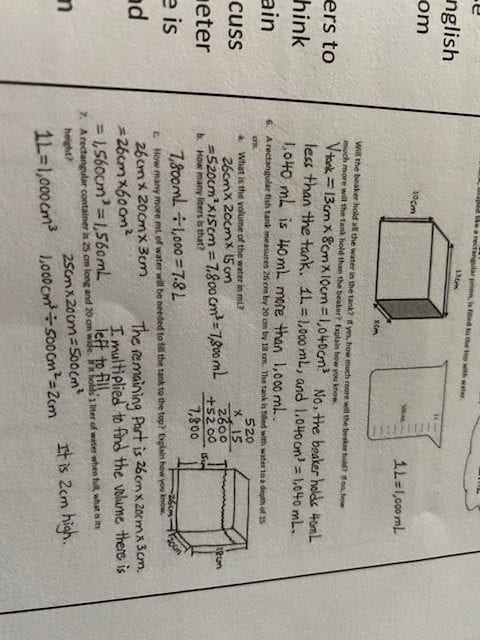 nglish
om
ers to
hink
ain
cuss
eter
e is
nd
n
shaped like a rectangular prism, is filled to the top with water.
13cm
10cm
8cm
1L
1L = 1,000 mL
Will the beaker hold all the water in the tank? If yes, how much more will the beaker hold? If no, how
much more will the tank hold than the beaker? Explain how you know.
Vtank = 13cm × 8cm × 10cm = 1,040cm³ No, the beaker holds 40mL
less than the tank. 1L = 1,000mL, and 1,040cm³ = 1,040 mL.
1,040 mL is 40mL more than 1,000 mL.
6. A rectangular fish tank measures 26 cm by 20 cm by 18 cm. The tank is filled with water to a depth of 15
cm.
a. What is the volume of the water in mL?
26cm × 20cm × 15cm
= 520cm² × 15cm = 7,800cm³ = 7,800 mL
520
× 15
2600
+5200
7,800
b. How many liters is that?
7,800mL ÷ 1,000 = 7.8 L
18cm
15cm
26cm
20cm
c. How many more mL of water will be needed to fill the tank to the top? Explain how you know.
26cm × 20cm × 3cm
= 26cm × 60cm²
= 1,560cm³ = 1,560mL
The remaining part is 26cm × 20cm × 3cm.
I multiplied to find the volume there is
left to fill.
7. A rectangular container is 25 cm long and 20 cm wide. If it holds 1 liter of water when full, what is its
height?
25cm × 20cm = 500cm²
1L = 1,000cm³ 1,000cm³ ÷ 500cm² = 2cm It is 2cm high.